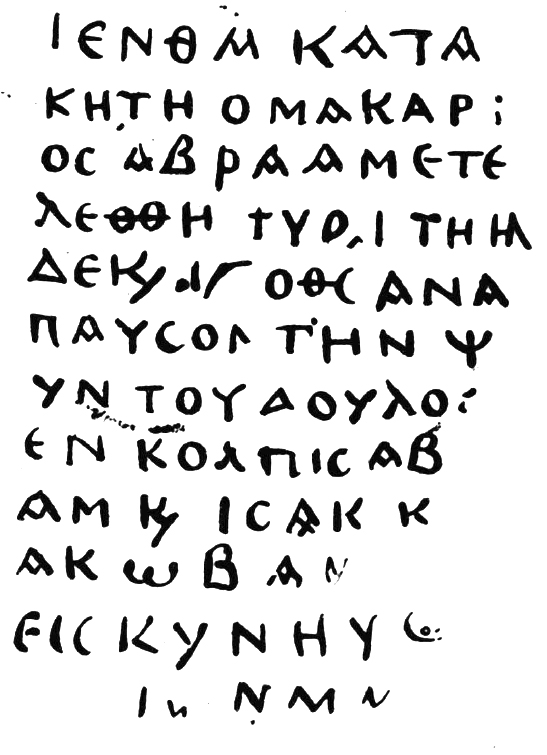 ΙΕΝΘΜ ΚΑΤΑ
ΚΗΤΗ Ο ΜΑΚΑΡΙ
ΟС ΑΒΡΑΑΜ ΕΤΕ
ΛΕΘΘΗ ΤΥΡΙ ΤΗΜ
ΔΕΚ ΟΘС ΑΝΑ
ΠΑΥСΟΝ ΤΗΝ Ψ
ΥΝ ΤΟΥ ΔΟΥΛΟΙ
ΕΝ ΚΟΛΠΙС ΑΒ
ΑΜ Κ ΙСΑΚ Κ
ΑΚωΒ ΑΝ
ΕΙС ΚΥΝΗΥ